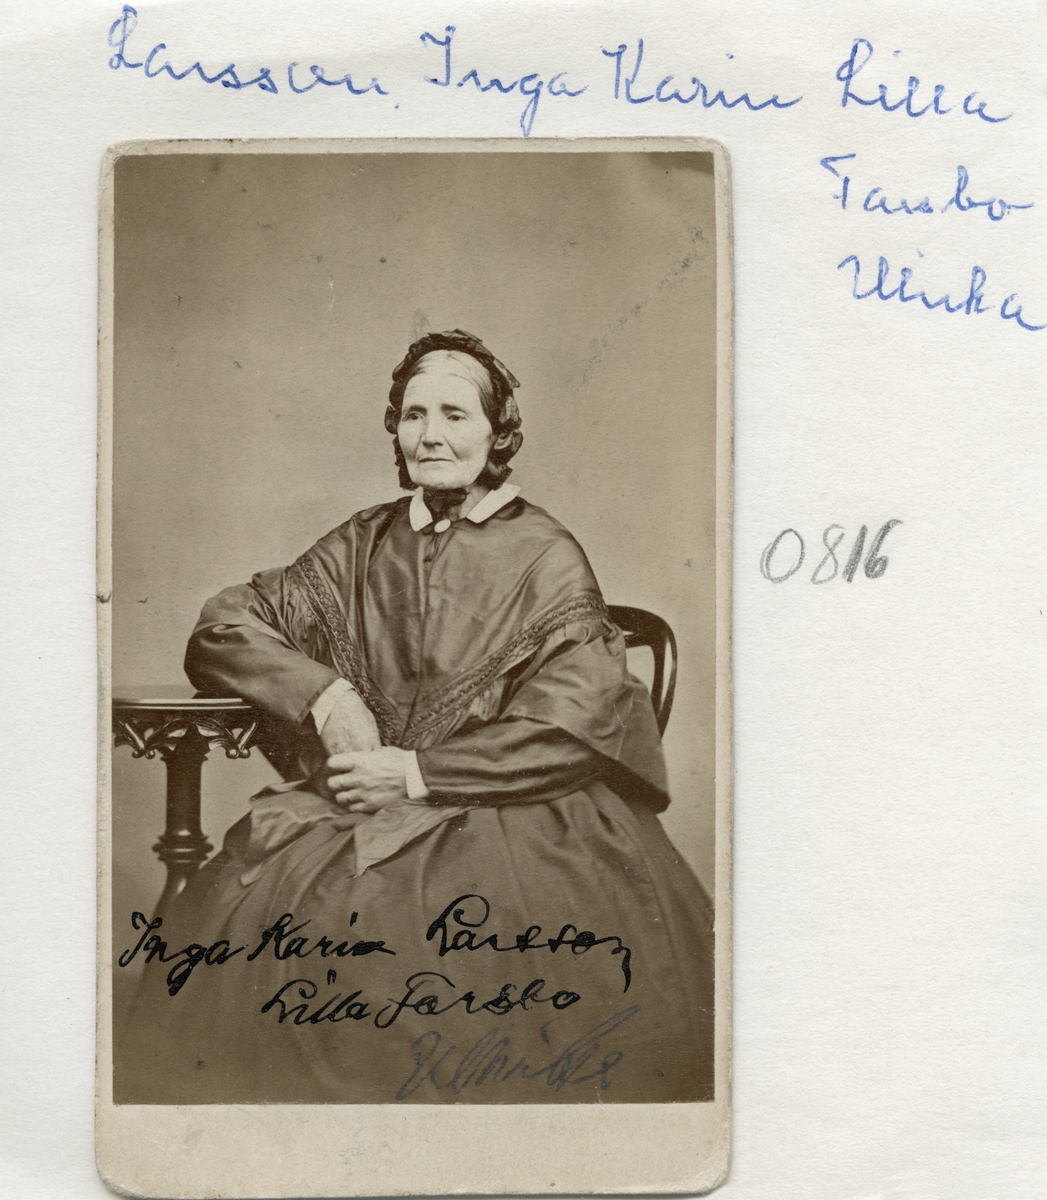 Larsson, Inga Karin Lilla
Tarsbo
Ulrika
0816
Inga Karin Larsson
Lilla Tarsbo
Ulrika